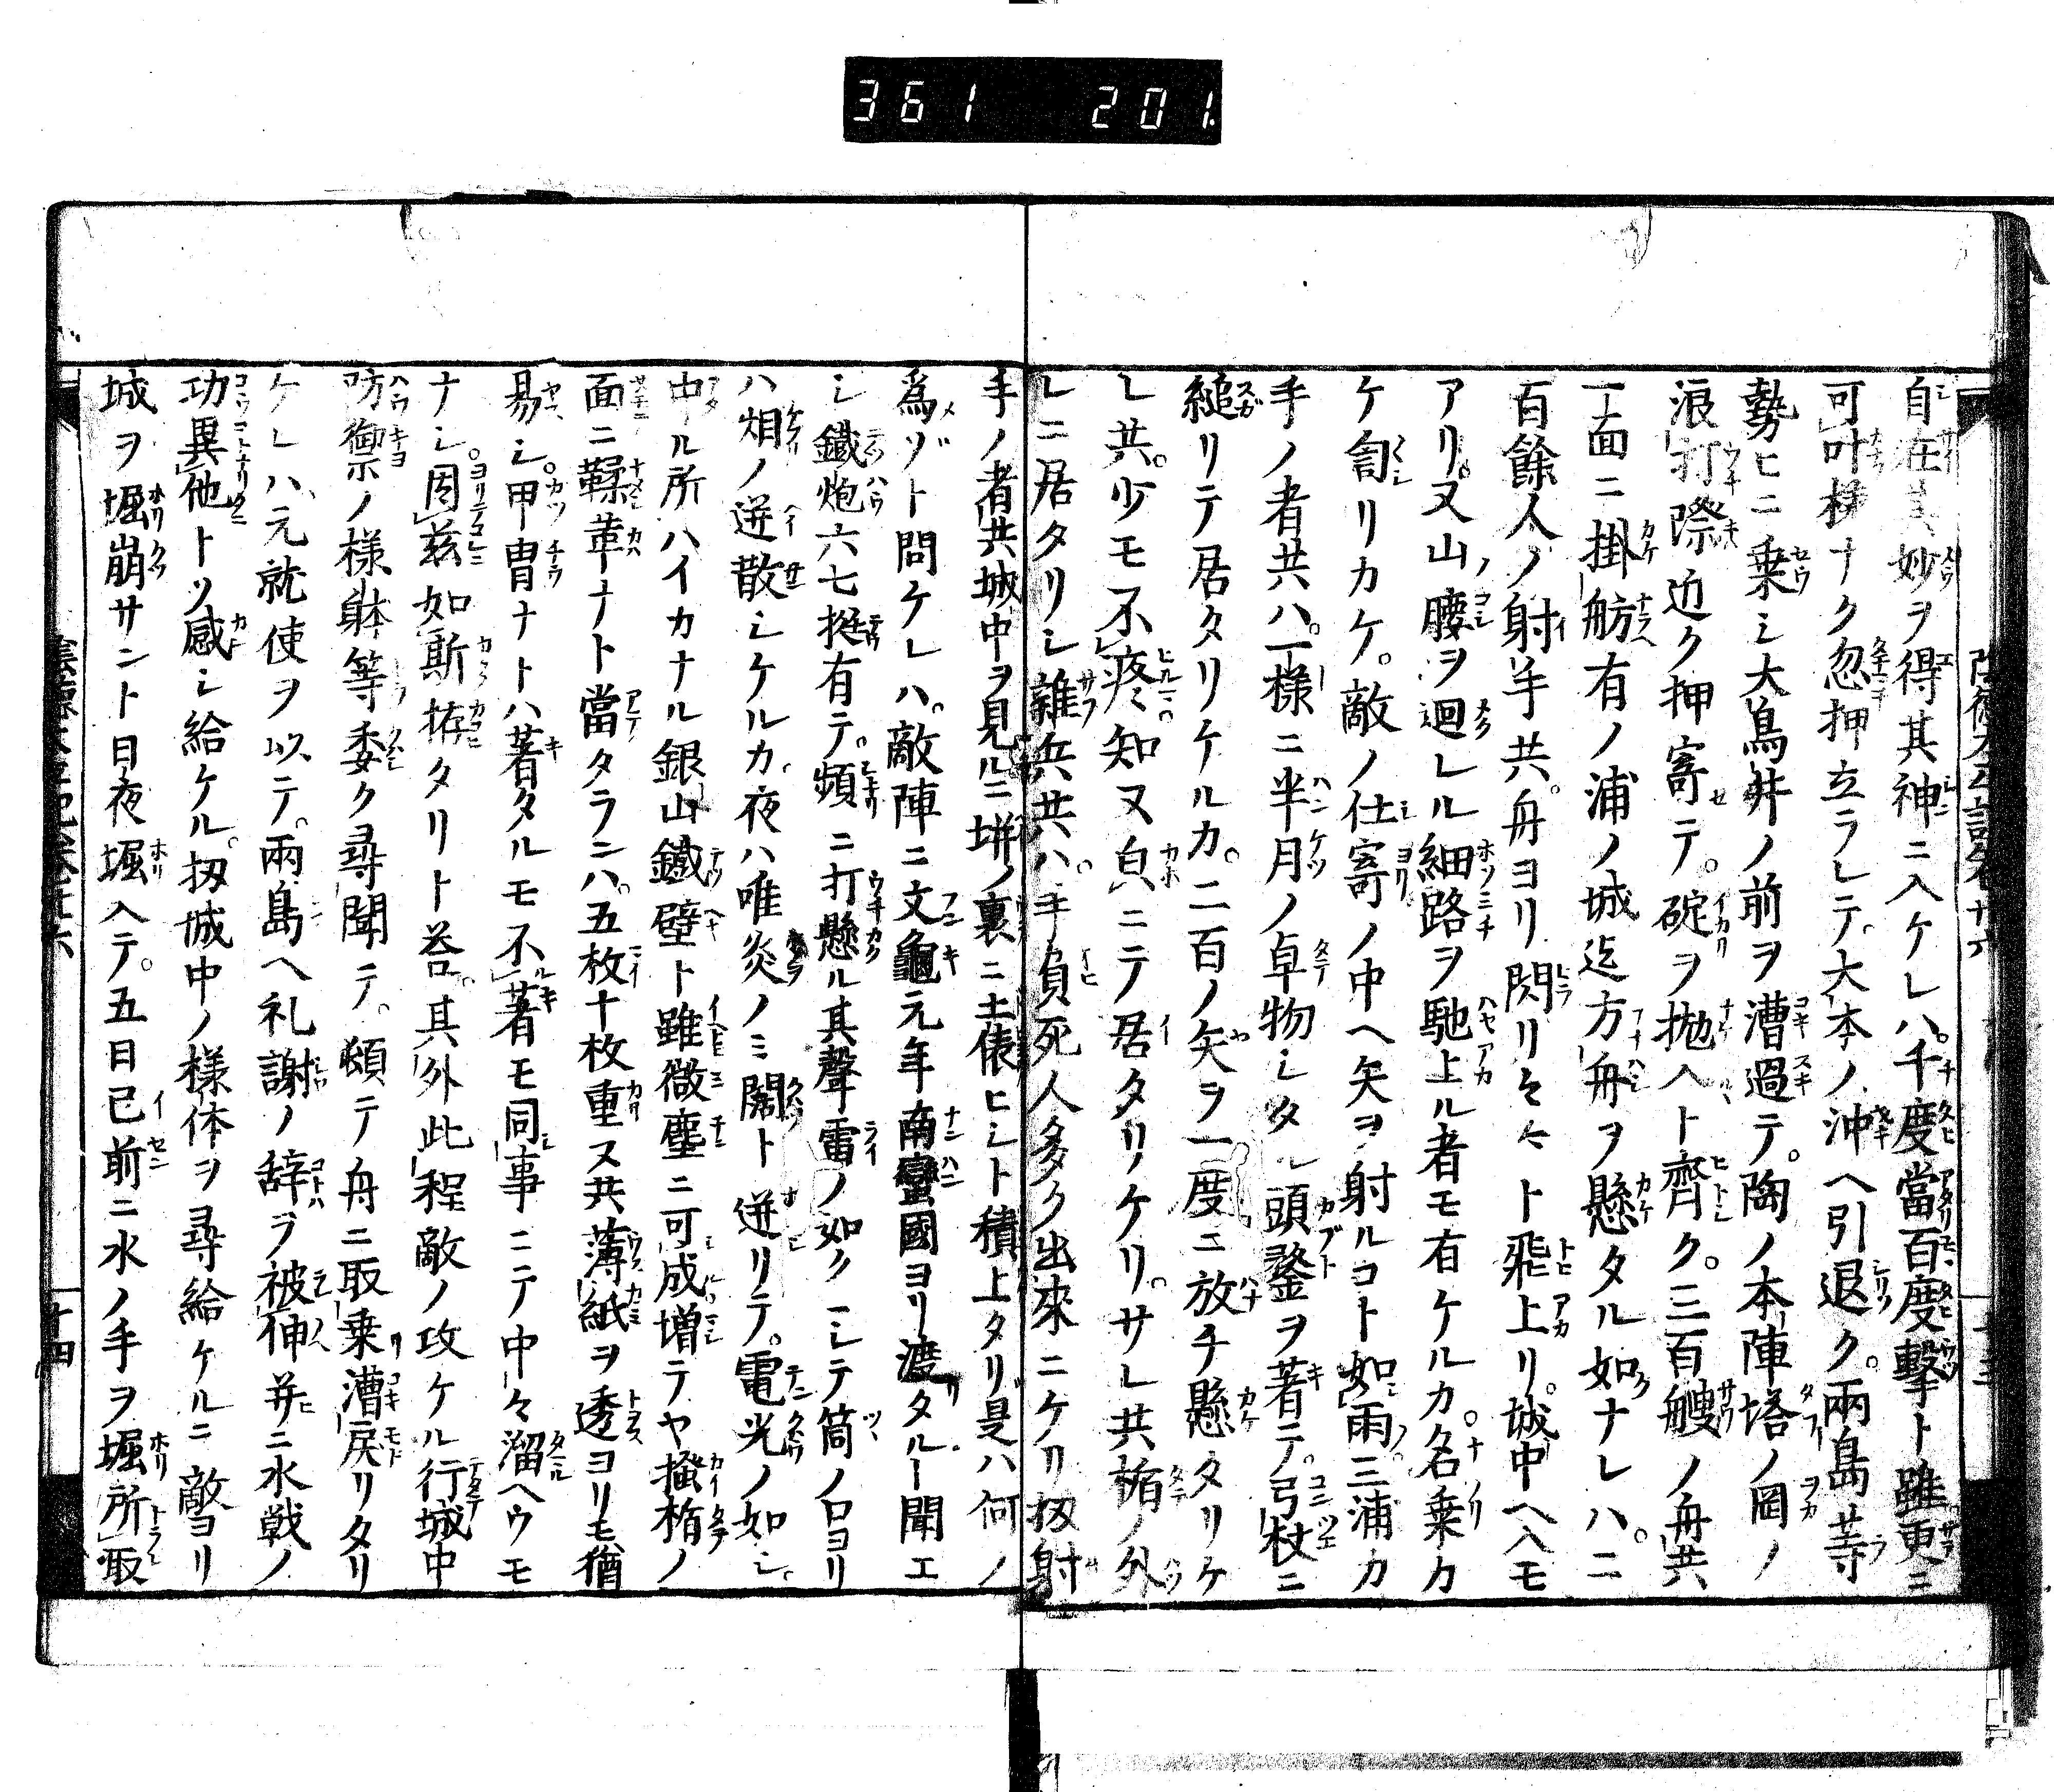 361 201
自在其妙ヲ得其神ニ入ケレハ。千度當百度擊ト雖更ニ
可叶様ナク忽押立ラレテ。大本ノ沖ヘ引退ク。兩島等
勢ヒニ乗シ大鳥井ノ前ヲ漕過テ。陶ノ本陣塔ノ岡ノ
浪打際近ク押寄テ。碇ヲ抛入ト齊ク。三百艘ノ舟共
一面ニ掛舫有ノ浦ノ城迄方舟ヲ懸タル如ナレハ。二
百餘人ノ射手共。舟ヨリ閃リ々々ト飛上リ。城中ヘ入モ
アリ。又山腰ヲ廻レル細路ヲ馳上ル者モ有ケルカ。名乗カ
ケ訇リカケ。敵ノ仕寄ノ中ヘ矢ヲ射ルコト如雨三浦カ
手ノ者共ハ。一様ニ半月ノ卓物シタル頭鍪ヲ著テ。弓杖ニ
縋リテ居タリケルカ。二百ノ矢ヲ一度ニ放チ懸タリケ
レ共。少モ不疼知又皃ニテ居タリケリ。サレ共楯ノ外
レニ居タリシ雜兵共ハ。手負死人多ク出來ニケリ扨射
手ノ者共城中ヲ見ルニ塀ノ裏ニ土俵ヒシト積上タリ是ハ何ノ
爲ゾト問ケレハ。敵陣ニ文龜元年南蠻國ヨリ渡リタルト聞エ
シ鐵炮六七挺有テ。頻ニ打懸ル其聲雷ノ如クニシテ筒ノ口ヨリ
ハ烟ノ迸散シケルカ。夜ハ唯炎ノミ閧ト迸リテ。電光ノ如シ。
中ル所ハイカナル銀山鐵壁ト雖微塵ニ可成増テヤ掻楯ノ
面ニ鞣革ナト當タランハ。五枚十枚重ヌ共薄紙ヲ透ヨリモ猶
易シ。甲冑ナトハ著タルモ不著モ同事ニテ中々溜ヘウモ
ナシ。因茲如斯拵タリト荅。其外此程敵ノ攻ケル行城中
防禦ノ様躰等委ク尋聞テ。頓テ舟ニ取乗漕戻リタリ
ケレハ、元就使ヲ以テ。兩島ヘ礼謝ノ辞ヲ被伸并ニ水戦ノ
功異他トソ感シ給ケル。扨城中ノ様体ヲ尋給ケルニ敵ヨリ
城ヲ堀崩サント日夜堀入テ。五日已前ニ水ノ手ヲ堀所取
十四